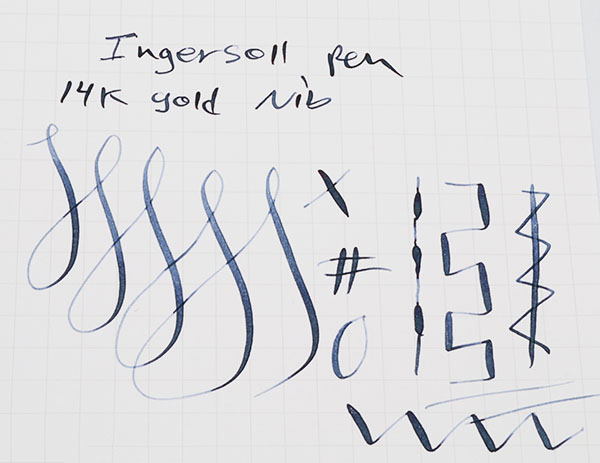 Ingersoll pen
14K gold Nib